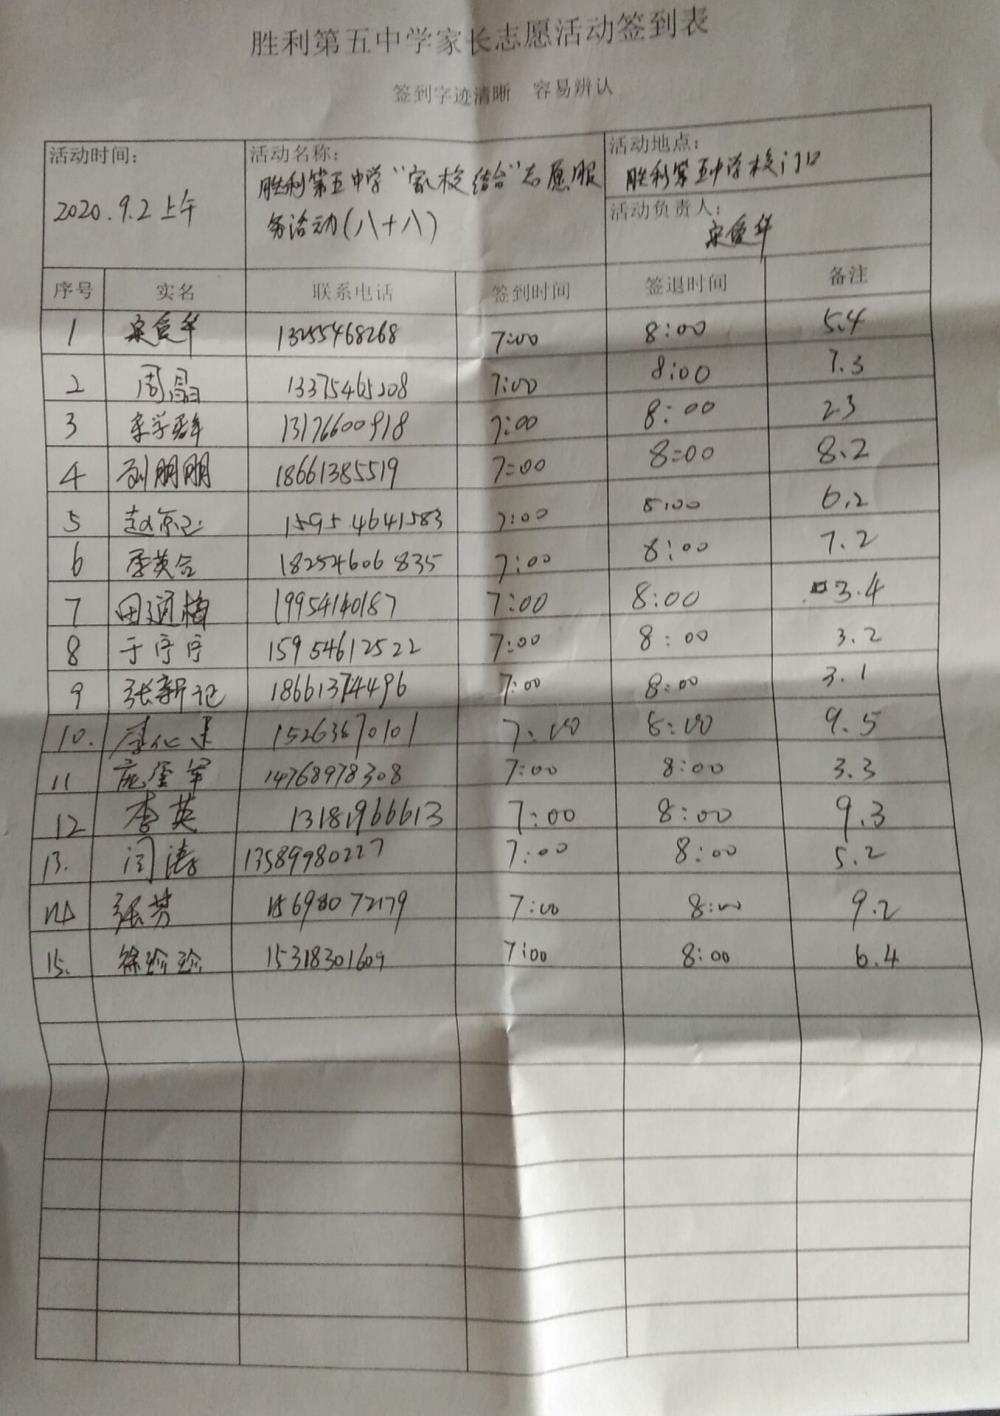 胜利第五中学家长志愿活动签到表
签到字迹清晰 容易辨认
活动时间: 活动名称: 活动地点:
2020.9.2上午 胜利第五中学“家校结合”志愿服 胜利第五中学校门口
务活动(八十八) 活动负责人:
宋爱华
序号 实名 联系电话 签到时间 签退时间 备注
1 宋爱华 13255468268 7:00 8:00 5.4
2 周晶 13375465208 7:00 8:00 7.3
3 13176600918 7:00 8:00 2.3
4 刘朋朋 18661385519 7:00 8:00 8.2
5 15954641583 7:00 8:00 6.2
6 李英合 18254606835 7:00 8:00 7.2
7 田通梅 19954140187 7:00 8:00 3.4
8 于序序 15954612522 7:00 8:00 3.2
9 张新记 18661374496 7:00 8:00 3.1
10. 15263870101 7:00 8:00 9.5
11 庞奎军 14768978308 7:00 8:00 3.3
12 李英 13181966613 7:00 8:00 9.3
13. 闫涛 13589980227 7:00 8:00 5.2
14 张芳 15698072179 7:00 8:00 9.2
15. 徐珍珍 15318301609 7:00 8:00 6.4